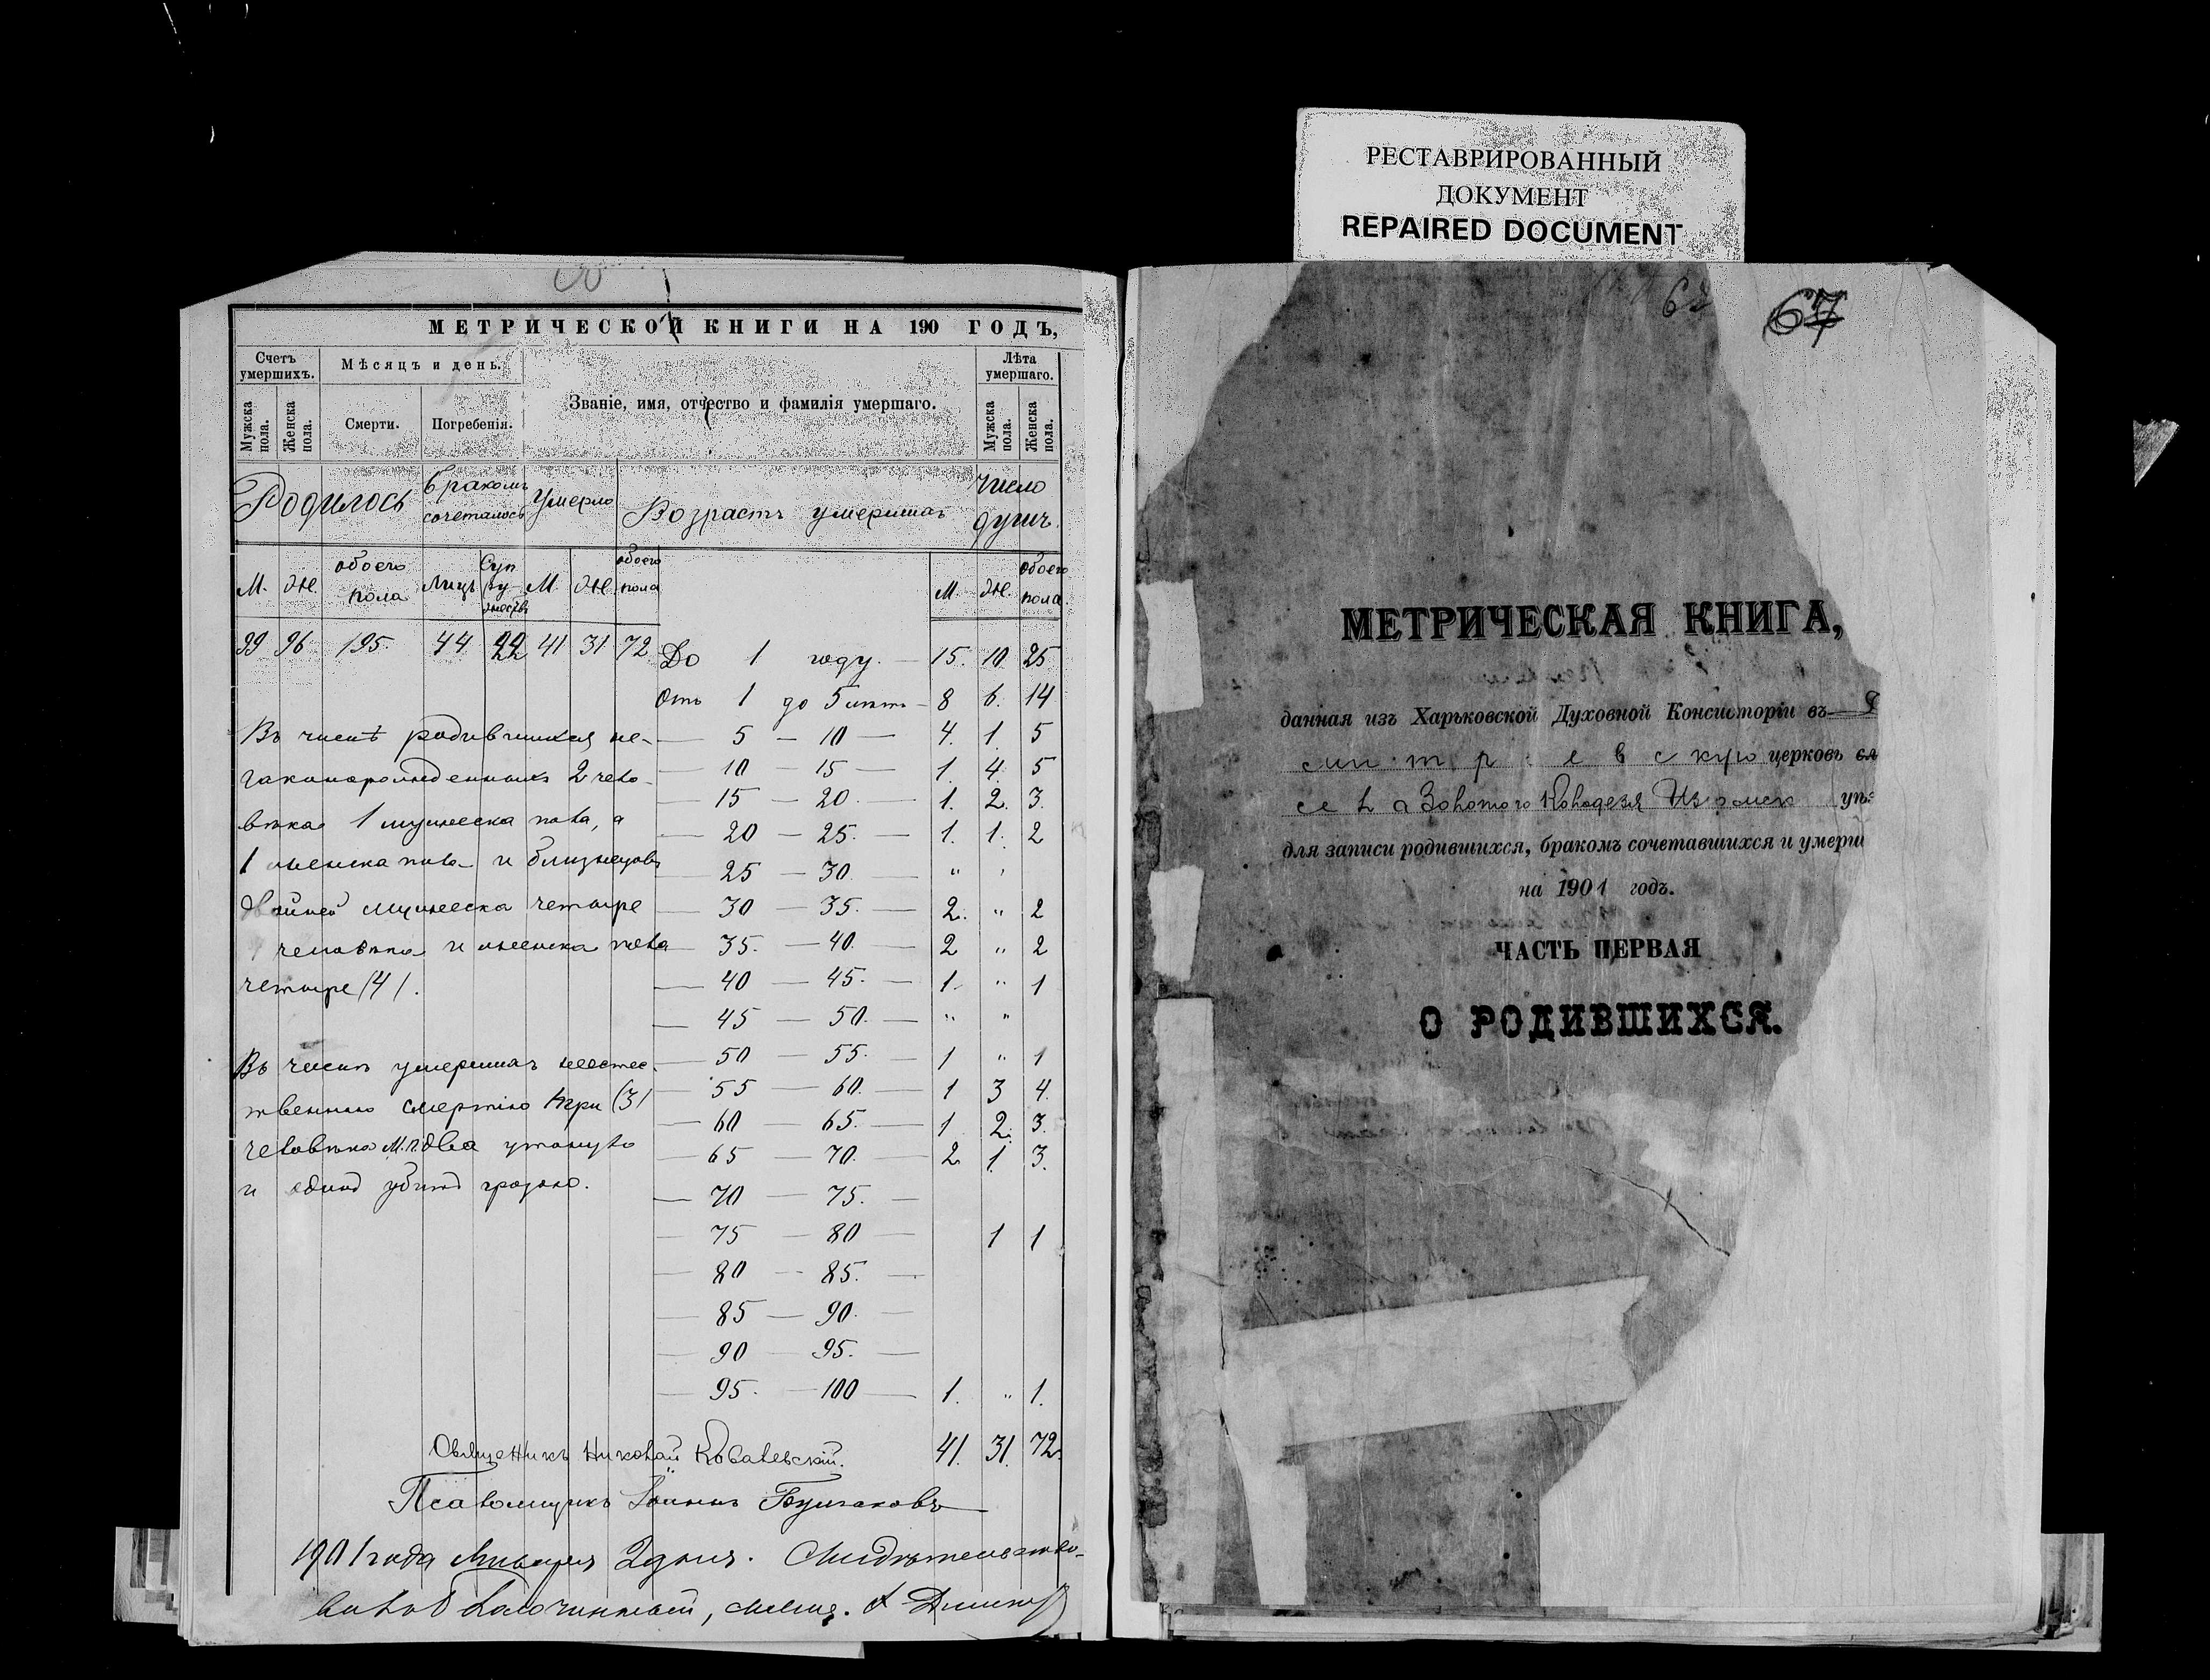 РЕСТАВРИРОВАННЫЙ
ДОКУМЕНТ
REPAIRED DOCUMENT
МЕТРИЧЕСКОЙ КНИГИ НА 190 ГОДЪ,
Счетъ умершихъ. Мѣсяцъ и день. Званіе, имя, отчество и фамилія умершаго. Лѣта умершаго.
Мужска пола. Женска пола. Смерти. Погребенія. Мужска пола. Женска пола.
Родилось Бракомъ сочеталось Умерло Возрастъ умершихъ Число душъ.
М. Же. обоего пола Лицъ Супружествъ М. Же. обоего пола М. Же. обоего пола
99 96 195. 44 22 41 31 72
До 1 году. — 15. 10. 25
Отъ 1 до 5 лѣтъ — 8 6. 14
— 5 — 10 — 4. 1. 5
— 10 — 15 — 1. 4. 5
— 15 — 20. — 1. 2. 3.
— 20 — 25. — 1. 1. 2
— 25 — 30. — "
— 30 — 35. — 2. " 2
— 35. — 40. — 2 " 2
— 40 — 45. — 1. " 1
— 45 — 50. — " "
— 50 — 55. — 1 " 1
— 55 — 60. — 1 3 4.
— 60 — 65. — 1 2. 3.
— 65 — 70. — 2 1 3.
— 70 — 75. —
— 75 — 80 — 1 1
— 80 — 85. —
— 85 — 90. —
— 90 — 95. —
— 95. — 100 — 1. " 1.
41. 31. 72.
Въ числѣ родившихся не-
законнорожденныхъ 2 чело-
вѣка 1 мужеска пола, а
1 женска пола и близнецовъ
двойней мужеска четыре
человѣка и женска пола
четыре (4).
Въ числѣ умершихъ неестес-
твенною смертію три (3)
человѣка м.п. два утонуло
и одинъ убитъ грозою.
Священникъ Николай Ковалевскій.
Псаломщикъ Іоаннъ Булгаковъ
1901 года Января 2 дня. Свидѣтельство-
валъ благочинный, свящ.
67
МЕТРИЧЕСКАЯ КНИГА,
данная изъ Харьковской Духовной Консисторіи въ Д
церковь сл
села Золотого Колодезя Изюмск уѣз
для записи родившихся, бракомъ сочетавшихся и умерш
на 1901 годъ.
ЧАСТЬ ПЕРВАЯ
О РОДИВШИХСЯ.